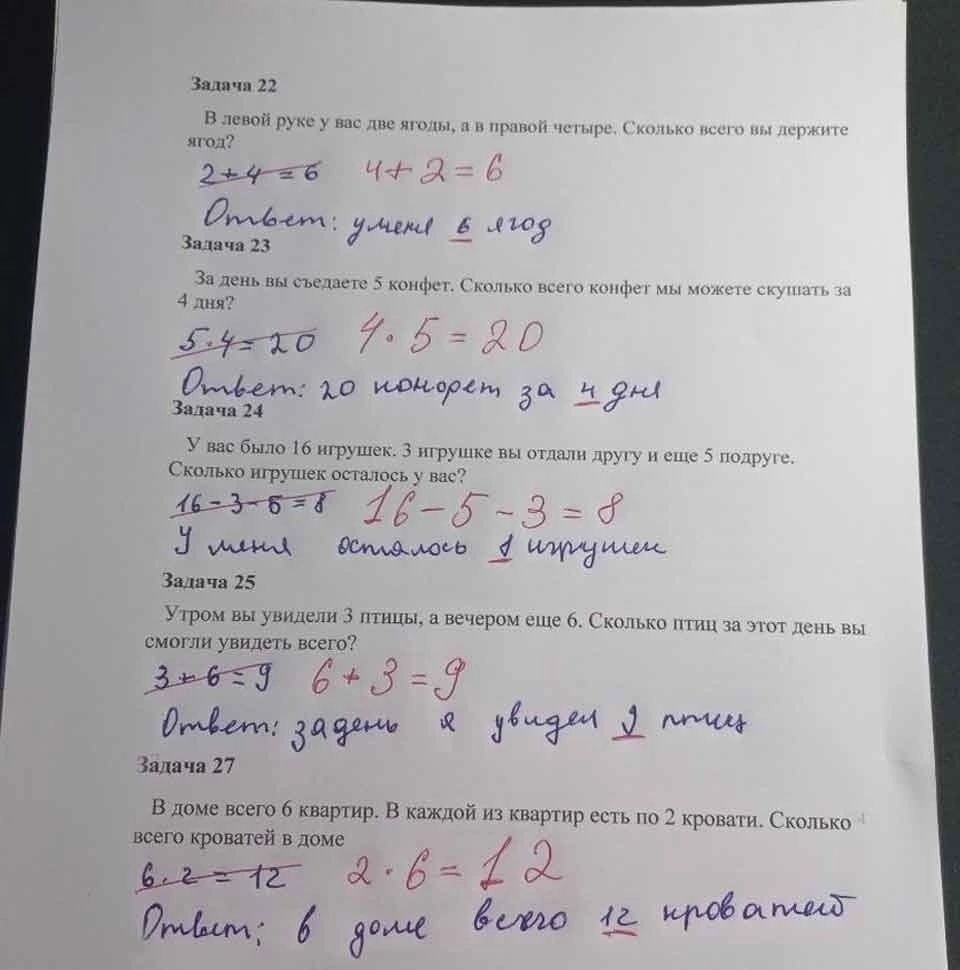 Задача 22
В левой руке у вас две ягоды, а в правой четыре. Сколько всего вы держите
ягод?
2+4=6 4+2=6
Ответ: у меня 6 ягод
Задача 23
За день вы съедаете 5 конфет. Сколько всего конфет мы можете скушать за
4 дня?
5·4=20 4·5=20
Ответ: 20 конфет за 4 дня
Задача 24
У вас было 16 игрушек. 3 игрушке вы отдали другу и еще 5 подруге.
Сколько игрушек осталось у вас?
16-3-5=8 16-5-3=8
У меня осталось 8 игрушек
Задача 25
Утром вы увидели 3 птицы, а вечером еще 6. Сколько птиц за этот день вы
смогли увидеть всего?
3+6=9 6+3=9
Ответ: за день я увидел 9 птиц
Задача 27
В доме всего 6 квартир. В каждой из квартир есть по 2 кровати. Сколько
всего кроватей в доме
6·2=12 2·6=12
Ответ: в доме всего 12 кроватей